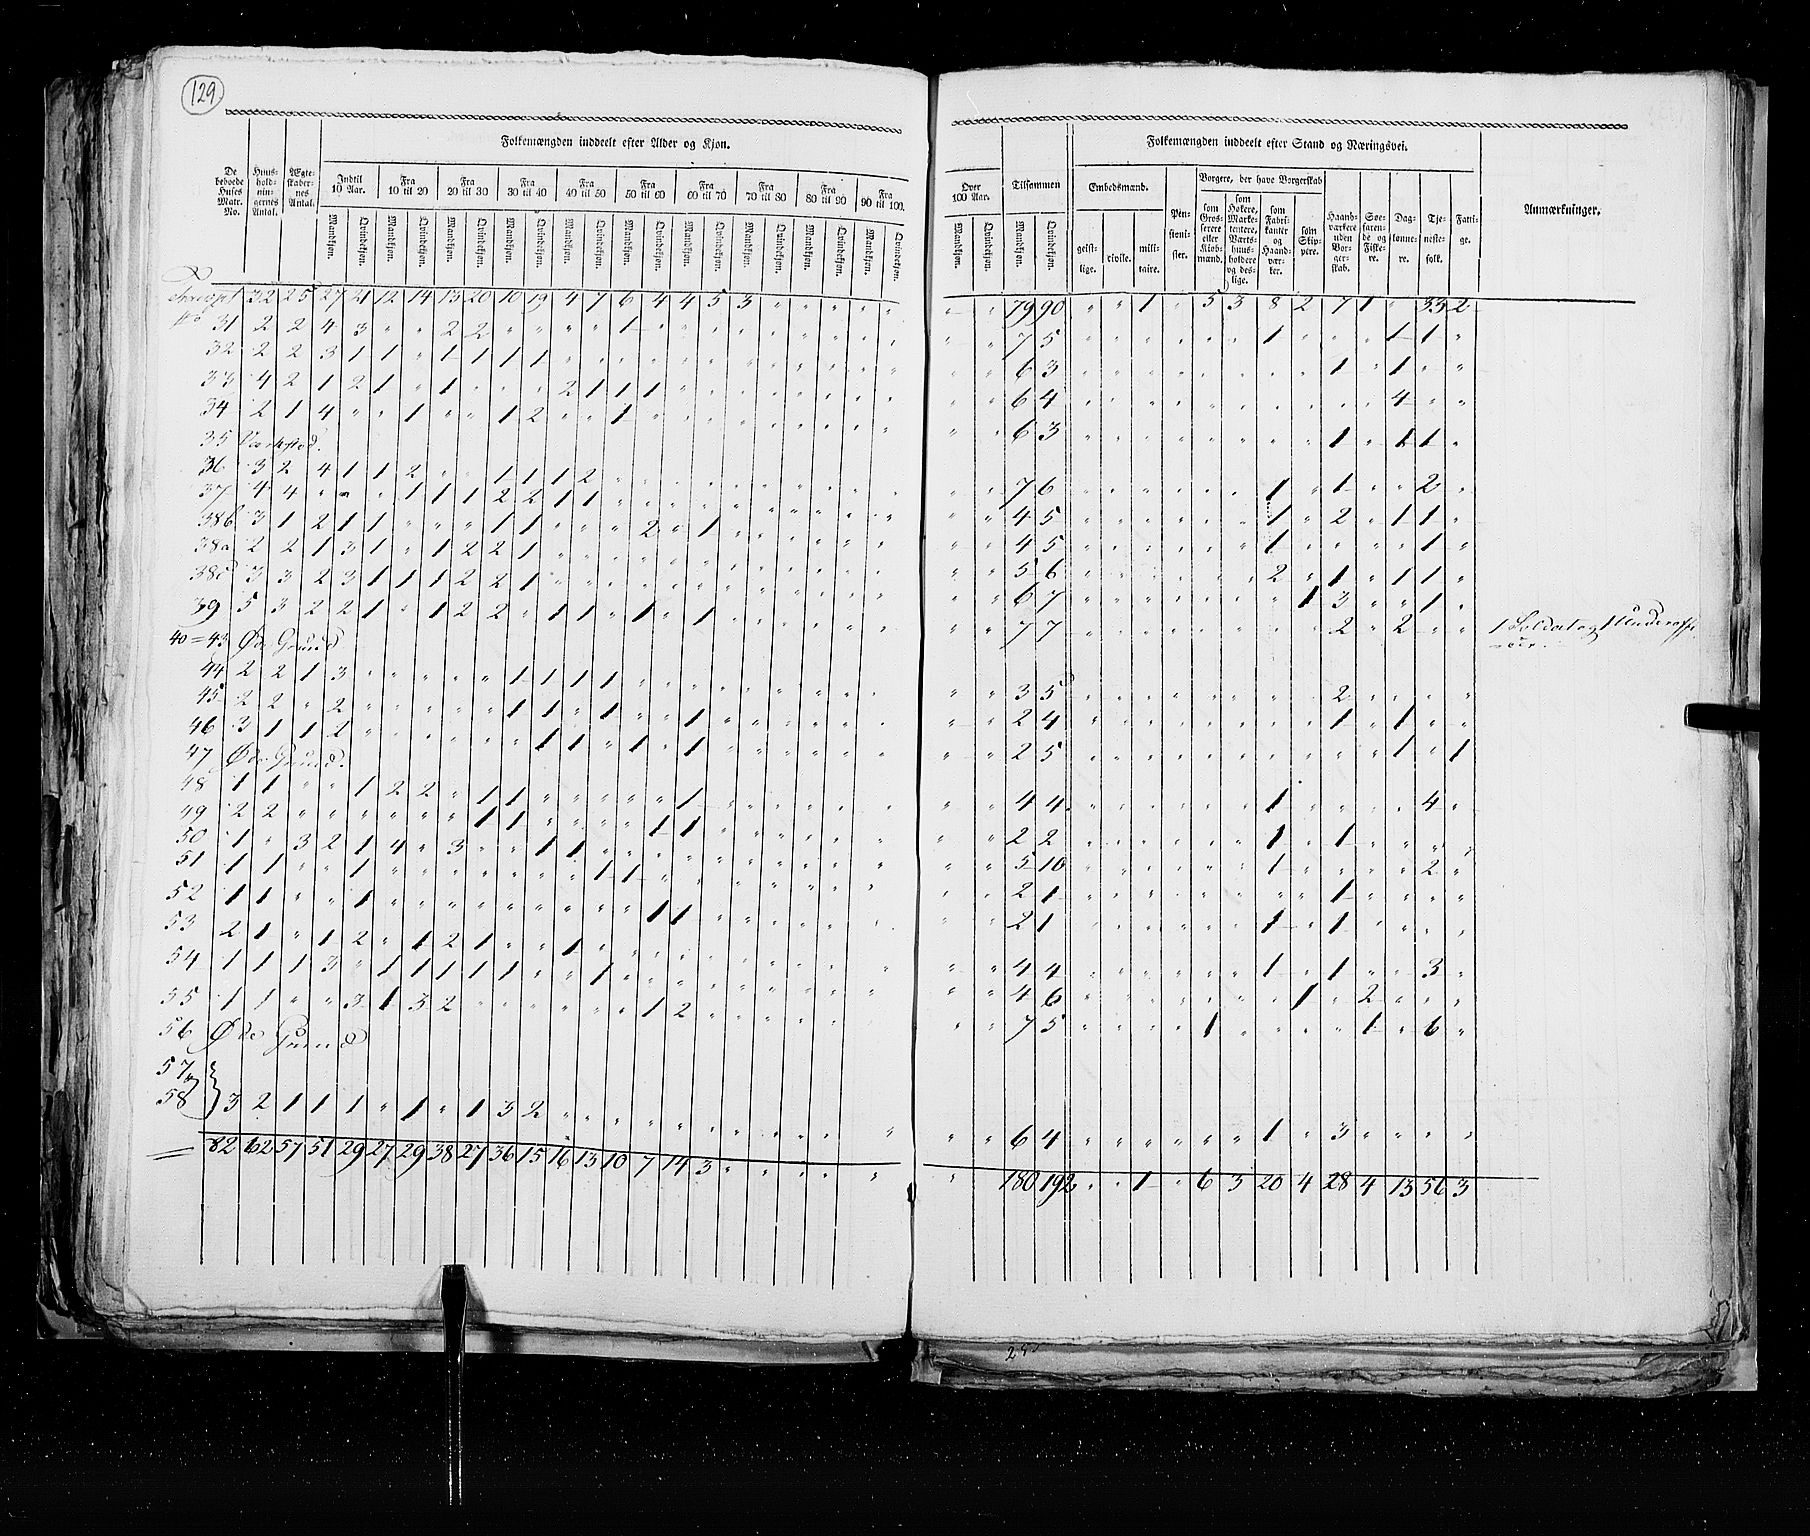 129
Folkemængden inddeelt efter Alder og Kjøn.
Folkemængden inddeelt efter Stand og Næringsvei.
De beboede Huses Matr. No.
Huus-hold-nin-gernes Antal.
Ægte-skaber-nes Antal.
Indtil 10 Aar.
Fra 10 til 20
Fra 20 til 30
Fra 30 til 40
Fra 40 til 50
Fra 50 til 60
Fra 60 til 70
Fra 70 til 80
Fra 80 til 90
Fra 90 til 100.
Over 100 Aar.
Tilsammen
Mandkjøn. Qvindekjøn.
Embedsmænd.
geist-lige.
civile.
mili-taire.
Pen-sioni-ster.
Borgere, der have Borgerskab
som Gros-serere eller Kiøb-mænd.
som Høkere, Marke-tentere, Værts-huus-holdere og des-lige.
som Fabri-kanter og Haand-vær-ker.
som Skip-pere.
Haand-værkere uden Bor-ger-skab.
Søe-faren-de og Fiske-re.
Dag-lønne-re.
Tje-neste-folk.
Fatti-ge.
Anmærkninger.
32 25 27 21 12 14 13 20 10 19 4 7 6 4 4 5 3 " " " " " " 79 90 " " 1 " 5 3 8 2 7 1 " 33 2
31 2 2 4 3 " " 2 2 " " " " 1 " " " " " " " " " " 7 5 " " " " " " 1 " " " 1 1 "
32 2 2 3 1 1 " 1 1 1 1 " " " " " " " " " " " " " 6 3 " " " " " " " " 1 " 1 " "
33 4 2 1 2 1 " 1 " " " 2 1 1 1 " " " " " " " " " 6 4 " " " " " " " " " " 4 " "
34 2 1 4 " " 1 " " 1 2 " " 1 " " " " " " " " " " 6 3 " " " " " " " " 1 " 1 1 "
35 Værksted.
36 3 2 4 1 1 2 " " 1 1 1 2 " " " " " " " " " " " 7 6 " " " " " " 1 " 1 " " 2 "
37 4 4 " " " 1 1 1 2 2 1 1 " " " " " " " " " " " 4 5 " " " " " " 1 " 2 " 1 1 "
38b 3 1 2 1 1 " " " 1 1 " " " 2 " 1 " " " " " " " 4 5 " " " " " " 1 " " " " 1 "
38a 2 2 1 3 1 " 1 2 2 1 " " " " " " " " " " " " " 5 6 " " " " " " 2 " 1 " 1 1 "
38c 3 3 2 3 1 1 1 2 2 1 " " " " " " " " " " " " " 6 7 " " " " " " " 1 3 " " 1 "
39 5 3 2 2 1 " 1 2 2 " 1 1 " 1 " 1 " " " " " " " 7 7 " " " " " " " " 2 " 2 " " 1 Soldat og 1 Underoffi-
cer.
40=43 Øde Grund
44 2 2 1 3 " " " " " 1 1 1 1 " " " " " " " " " " 3 5 " " " " " " " " 2 " " " "
45 2 2 " 2 " " " " " 1 1 " 1 " " 1 " " " " " " " 2 4 " " " " " " " " 1 " 1 " "
46 3 1 1 2 " " " " " " 1 1 " 1 " 1 " " " " " " " 2 5 " " " " " " " " " " 1 " 1
47 Øde Grund.
48 1 1 " " 1 2 2 " 1 1 " " " " " 1 " " " " " " " 4 4 " " " " " " 1 " " " " 4 "
49 2 2 " " " " " " 1 1 " " " " 1 1 " " " " " " " 2 2 " " " " " " 1 " 1 " " " "
50 1 " 3 2 1 4 " 3 " " 1 1 " " " " " " " " " " " 5 10 " " " " " " 1 " " " " 2 "
51 1 1 " " 1 " " " " " " " 1 1 " " " " " " " " " 2 1 " " " " " " " " 1 " " " "
52 1 1 " " 1 " " " " " " " " " 1 1 " " " " " " " 2 1 " " " " " " 1 " 1 " " " "
53 2 1 " 1 2 " 1 2 1 " " 1 " " " " " " " " " " " 4 4 " " " " " " 1 " 1 " " 3 "
54 1 1 1 3 " 1 1 1 1 1 " " 1 " " " " " " " " " " 4 6 " " " " " " " 1 " 2 " " "
55 1 1 " " 3 1 3 2 " " " " " " 1 2 " " " " " " " 7 5 " " " " 1 " " " " 1 " 6 "
56 Øde Grund
57
58 } 3 2 1 1 1 " 1 " 1 3 2 " " " " " " " " " " " " 6 4 " " " " " " 1 " 3 " " " "
82 62 57 51 29 27 29 38 27 36 15 16 13 10 7 14 3 " " " " " " 180 192 " " 1 " 6 3 20 4 28 4 13 56 3